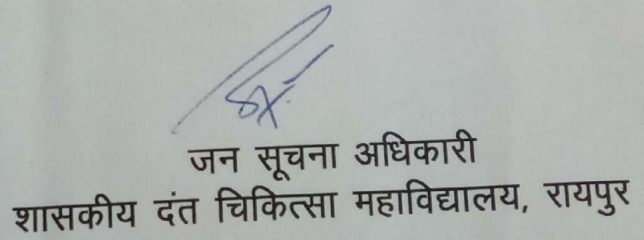 जन सूचना अधिकारी
शासकीय दंत चिकित्सा महाविद्यालय, रायपुर